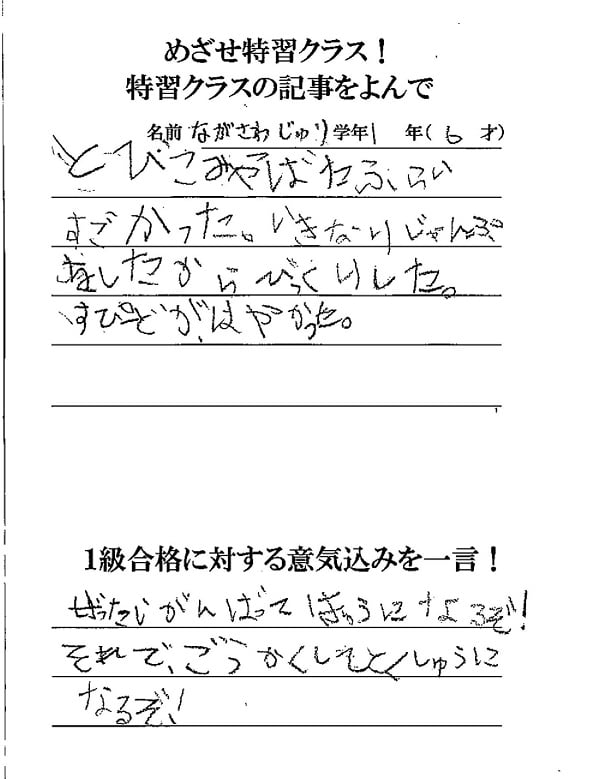 めざせ特習クラス！
特習クラスの記事をよんで
名前 ながさわじゅり 学年 1 年( 6 才)
とびこみやばたふらい
すごかった。いきなりじゃんぷ
をしたからびっくりした。
すぴーどがはやかった。
1級合格に対する意気込みを一言！
ぜったいがんばって きゅうになるぞ！
それで、ごうかくしてとくしゅうに
なるぞ！